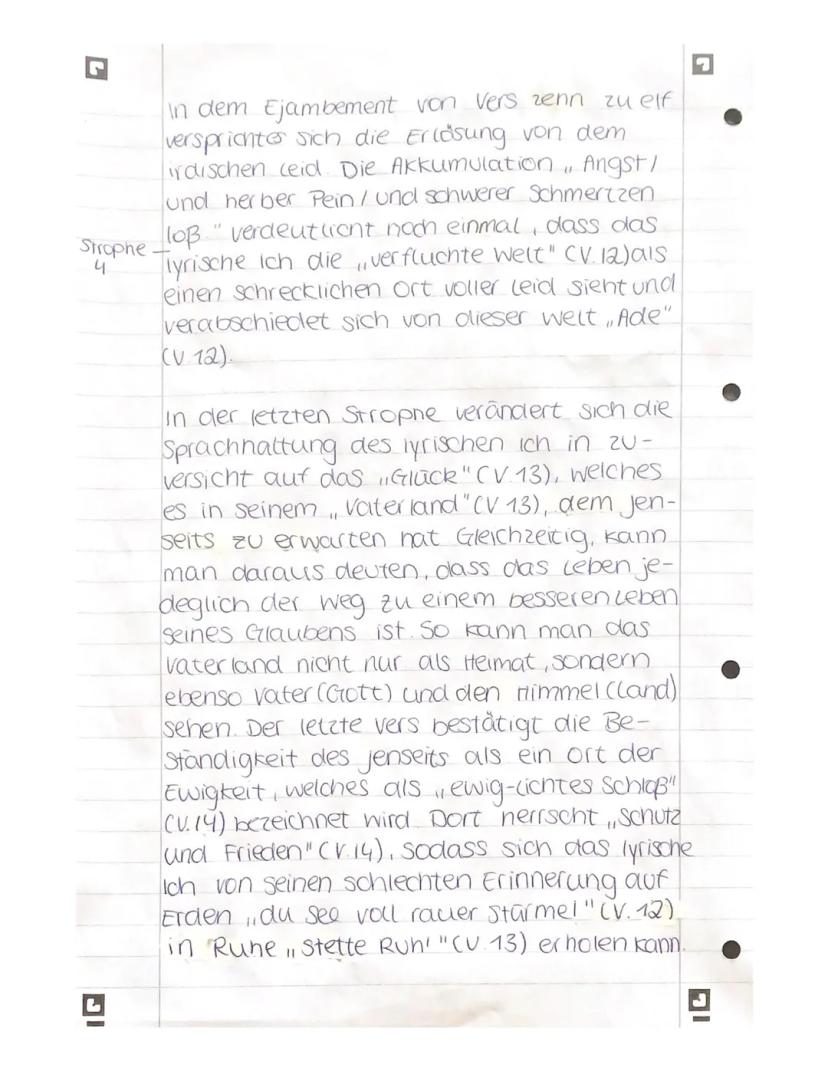 In dem Ejambement von Vers zehn zu elf
versprichtes sich die Erlösung von dem
irdischen Leid. Die Akkumulation „Angst/
und herber Pein/und schwerer Schmertzen
loß." verdeutlicht noch einmal, dass das
Strophe 4
lyrische Ich die „verfluchte Welt" (V.12) als
einen schrecklichen Ort voller Leid sieht und
verabschiedet sich von dieser Welt „Ade"
(V.12).
In der letzten Strophe verändert sich die
Sprachhaltung des lyrischen Ich in Zu-
versicht auf das „Glück" (V.13), welches
es in seinem „Vaterland" (V.13), dem Jen-
seits zu erwarten hat. Gleichzeitig, kann
man daraus deuten, dass das Leben je-
deglich der Weg zu einem besseren Leben
seines Glaubens ist. So kann man das
Vaterland nicht nur als Heimat, sondern
ebenso Vater (Gott) und den Himmel (Land)
sehen. Der letzte Vers bestätigt die Be-
ständigkeit des Jenseits als ein Ort der
Ewigkeit, welches als „ewig-lichtes Schloß"
(V.14) bezeichnet wird. Dort herrscht „Schutz
und Frieden" (V.14), sodass sich das lyrische
Ich von seinen schlechten Erinnerung auf
Erden „du See voll rauer Stürme!" (V.12)
in Ruhe „stette Ruh'" (V.13) erholen kann.